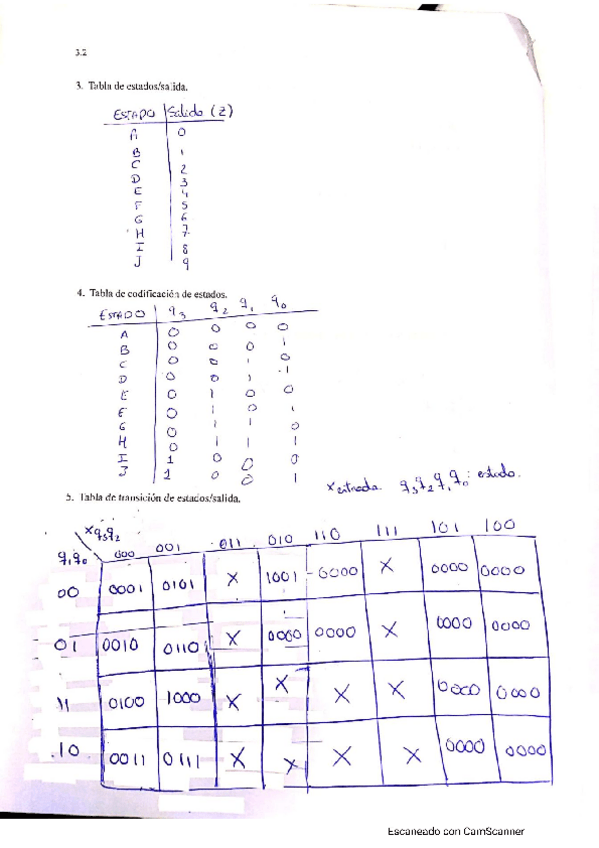 3.2
3. Tabla de estados/salida.
ESTADO Salida (Z)
A 0
B 1
C 2
D 3
E 4
F 5
G 6
H 7
I 8
J 9
4. Tabla de codificación de estados.
ESTADO q3 q2 q1 q0
A 0 0 0 0
B 0 0 0 1
C 0 0 1 0
D 0 0 1 1
E 0 1 0 0
F 0 1 0 1
G 0 1 1 0
H 0 1 1 1
I 1 0 0 0
J 1 0 0 1
x entrada. q3q2q1q0: estado.
5. Tabla de transición de estados/salida.
xq3q2
q1q0 000 001 011 010 110 111 101 100
00 0001 0101 X 1001 0000 X 0000 0000
01 0010 0110 X 0000 0000 X 0000 0000
11 0100 1000 X X X X 0000 0000
10 0011 0111 X X X X 0000 0000
Escaneado con CamScanner